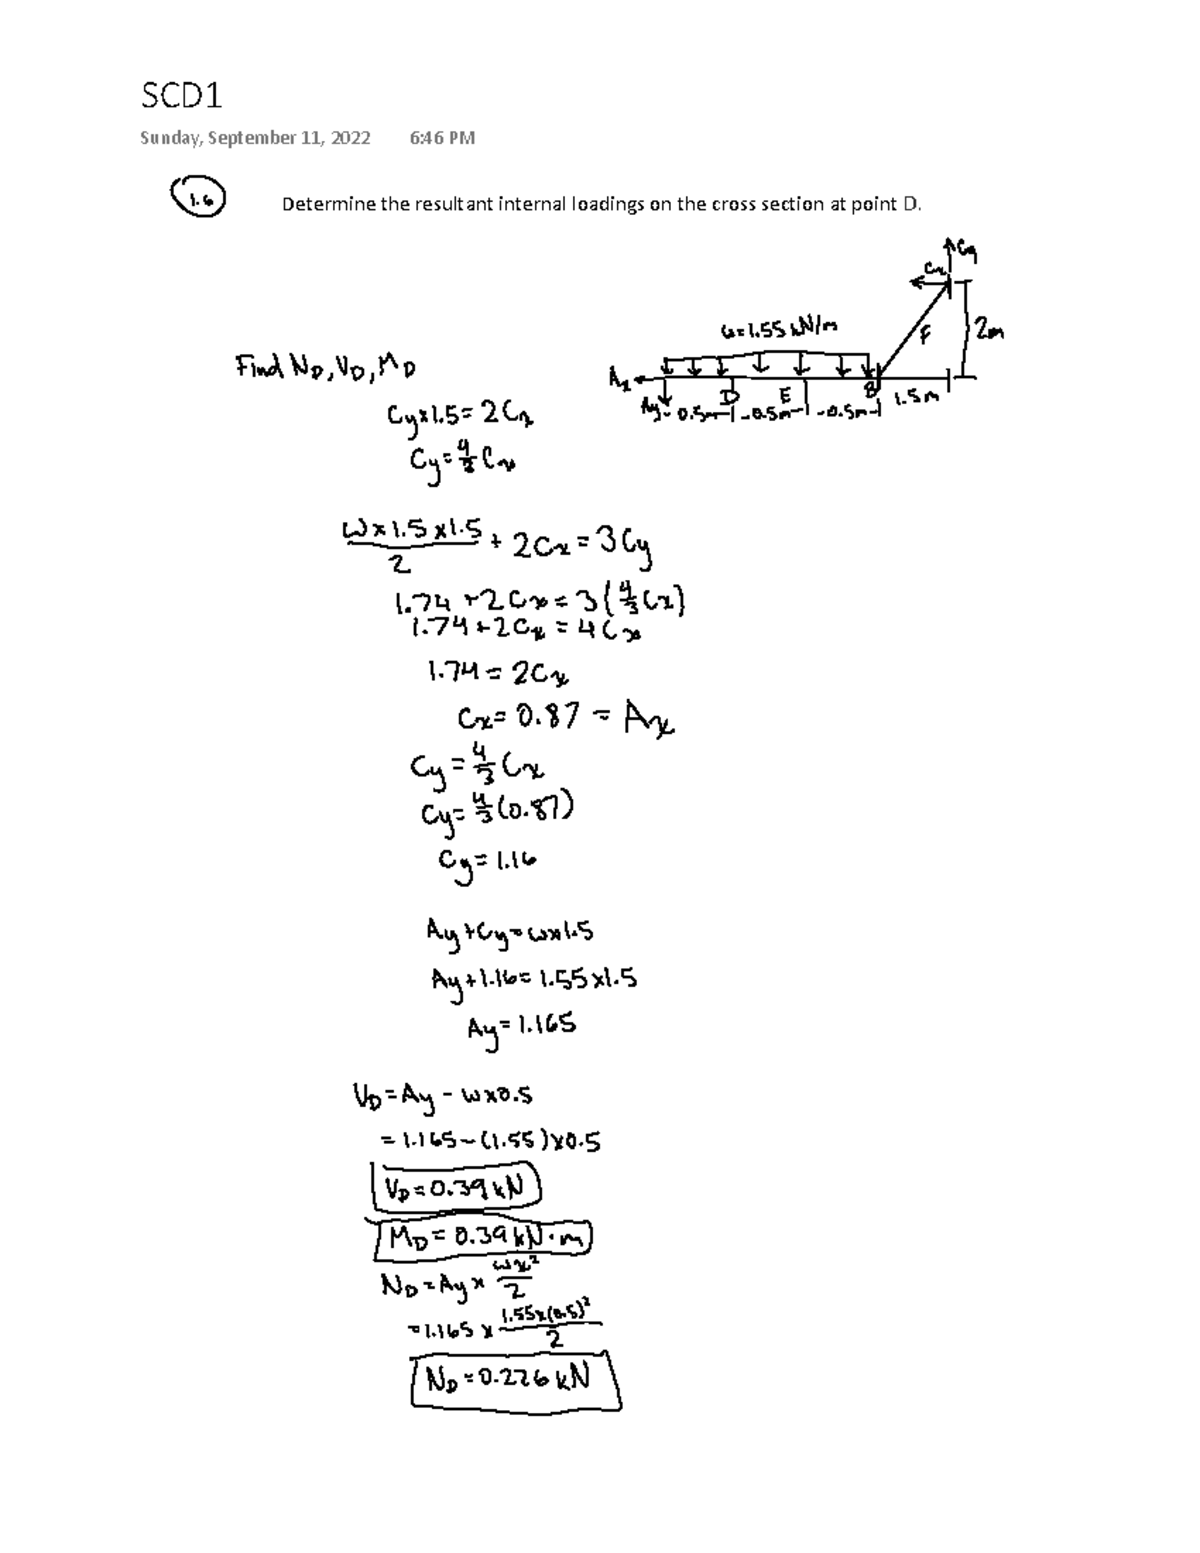 SCD1
Sunday, September 11, 2022 6:46 PM
1.6 Determine the resultant internal loadings on the cross section at point D.
Cy
Cx
w=1.55 kN/m
F
2m
Find ND, VD, MD
Ax
Ay
D
E
B
0.5m
0.5m
0.5m
1.5m
Cy×1.5 = 2Cx
Cy = 4/3 Cx
w×1.5×1.5/2 + 2Cx = 3Cy
1.74 + 2Cx = 3(4/3 Cx)
1.74 + 2Cx = 4Cx
1.74 = 2Cx
Cx = 0.87 = Ax
Cy = 4/3 Cx
Cy = 4/3 (0.87)
Cy = 1.16
Ay + Cy = w×1.5
Ay + 1.16 = 1.55×1.5
Ay = 1.165
VD = Ay - w×0.5
= 1.165 - (1.55)×0.5
VD = 0.39 kN
MD = 0.39 kN·m
ND = Ay × wx²/2
= 1.165 × 1.55×(0.5)²/2
ND = 0.226 kN